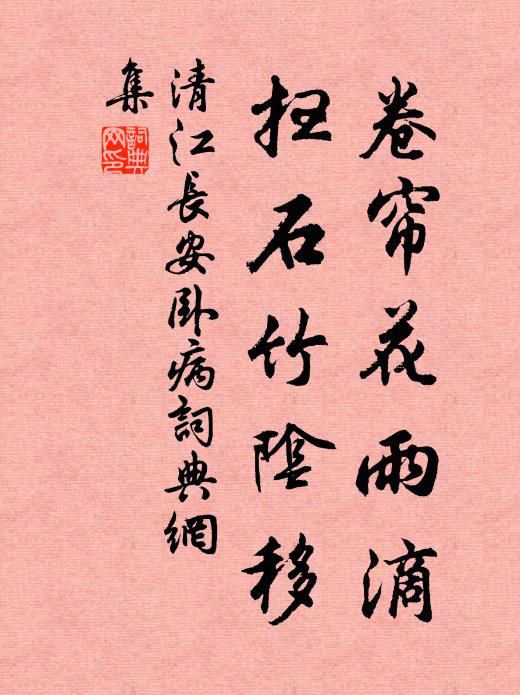 卷帘花雨滴
扫石竹阴移
清江長安卧病詞典網
集
詞典
网印